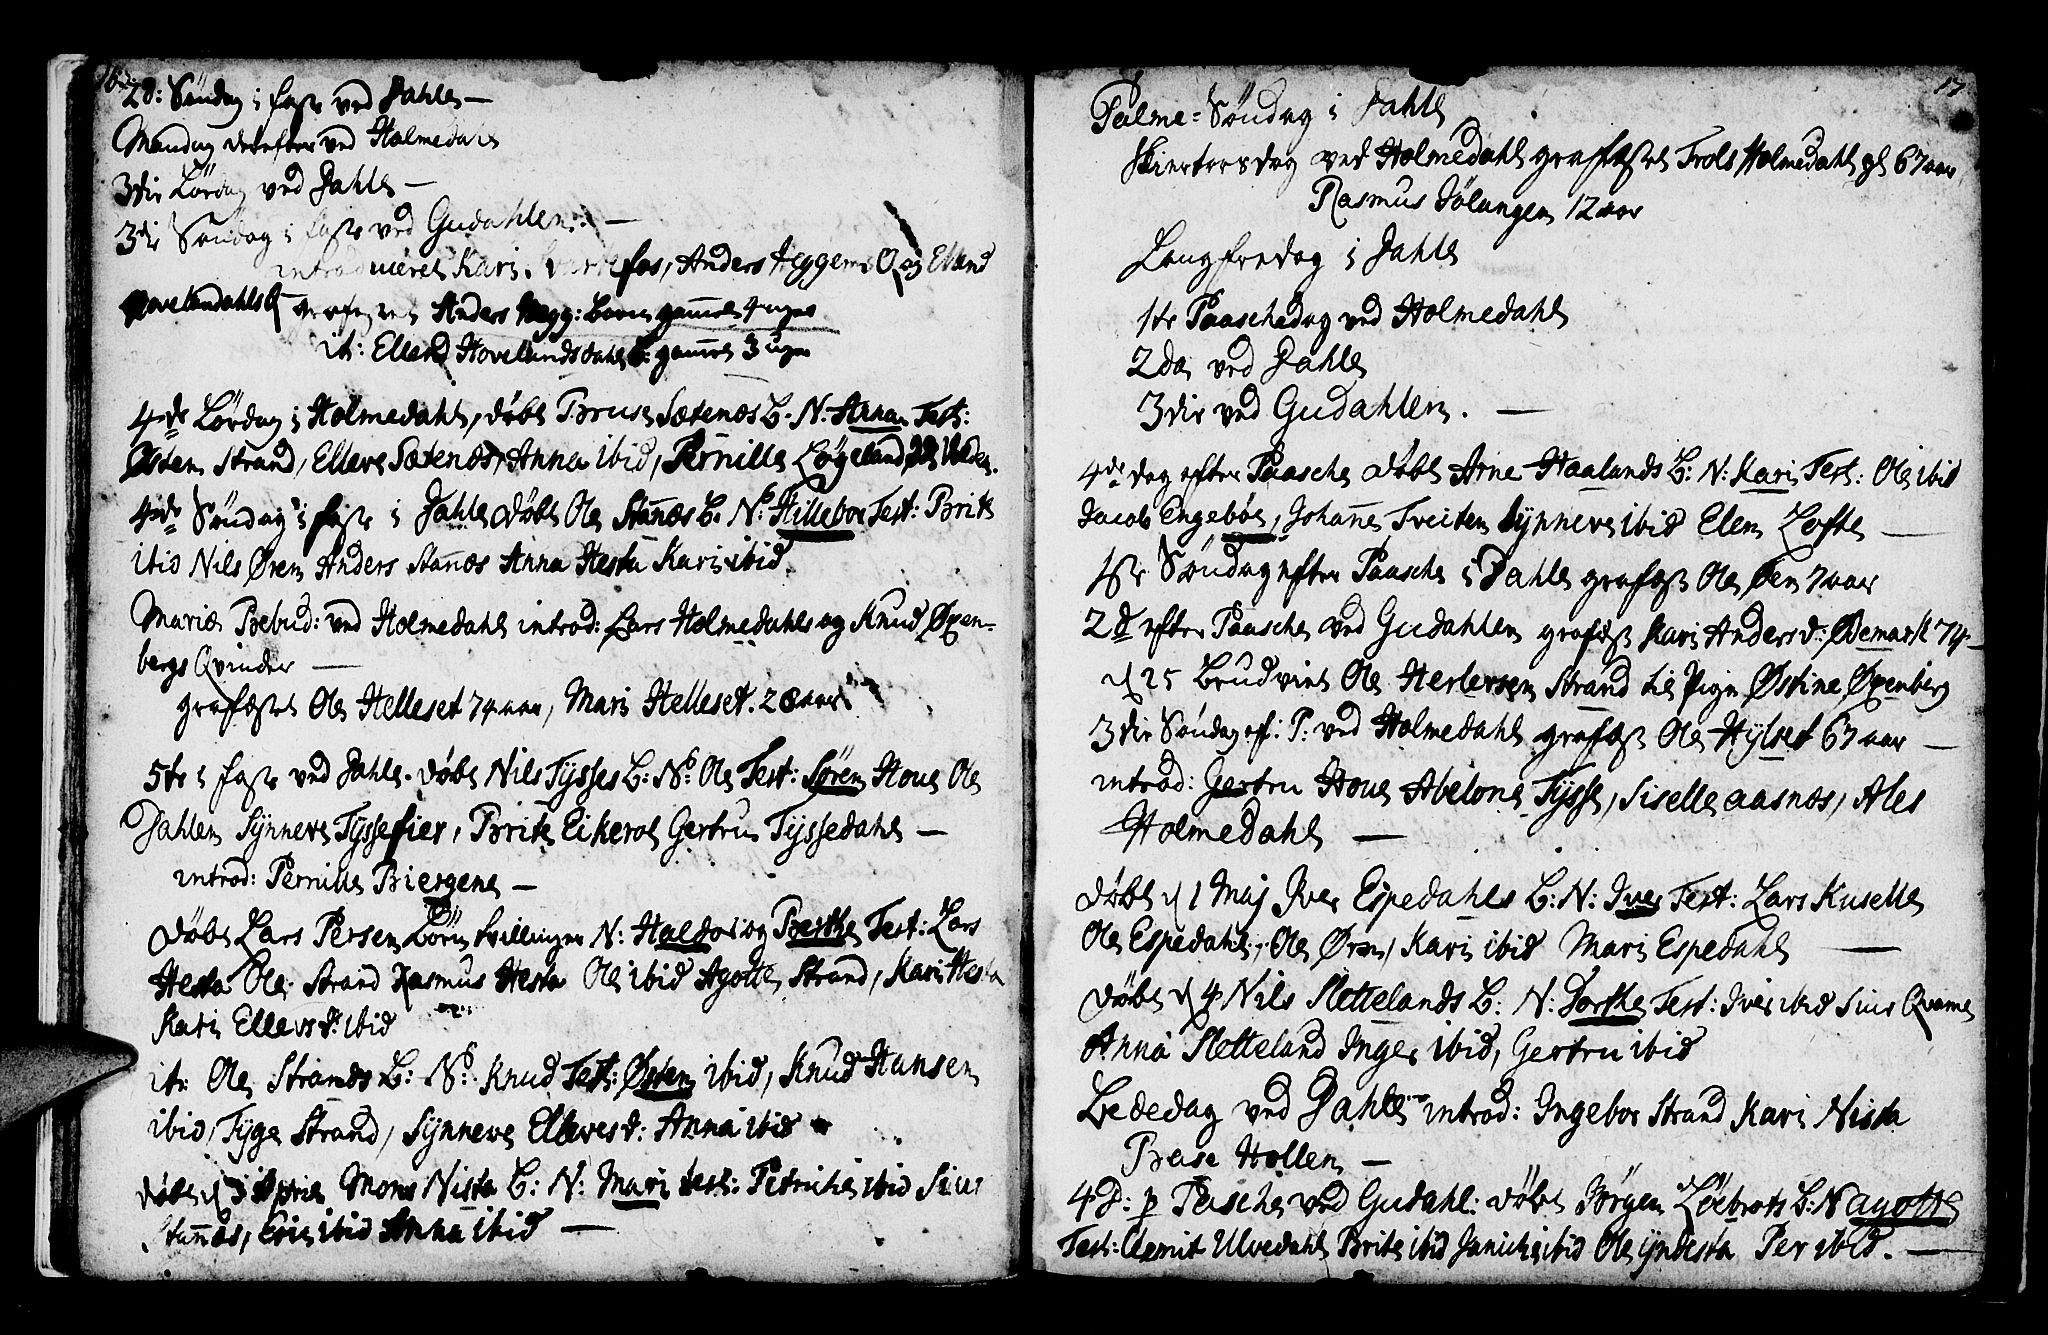 16
2d: Søndag i faste ved Dahle —
Mandag derefter ved Holmedahl
3die Lørdag ved Dahle —
3die Søndag i faste ved Gudahlen: —
introduceret Kari fos, Anders Hegge Q og Elend
Hovelandahls Q — grafestet Anders Hegg: Barn gamel 4 uger
it: Ellend Hovelandsdahls B: gamel 3 uger
4de Lørdag i Holmedahl, døbt Bruse Sætenæs B. N: Anna Test:
Østen Strand, Elleve Sætenæs, Anna ibid, Pernille Løgeland
4de Søndag i faste i Dahle døbt Ole Stanæs B. No Hillebor Test: Brite
ibid Nils Øren Anders Stanæs Anna Hesta Kari ibid.
Mariæ Bebud: ved Holmedahl introd: Lars Holmedahls og Knud Øxen-
bergs Qvinder —
grafæstet Ole Helleset 74 aar, Mari Helleset. 28 aar
5te i faste ved Dahle. døbt Nils Tysses B: No: Ole Test: Søren Houe Ole
Dahlen Synneve Tyssefier, Brite Eikerol Gertru Tyssedahl —
introd: Pernille Biergene —
døbt Lars Persen Børn tvillinger N: Haldor og Berthe Test: Lars
Hesta Ole Strand Rasmus Hesta Ole ibid Agotte Strand, Kari Hesta
Kari Ellevsd: ibid
it: Ole Strands B: No: Knud Test: Østen ibid, Knud Hansen
ibid, Tyge Strand, Synneve Ellevesd: Anna ibid
døbt d 3 April Mons Nista B: N: Mari test: Petriche ibid Sius
Stanæs, Eric ibid Anna ibid —
17
Palme=Søndag i Dahle
Skiertorsdag ved Holmedahl grafæstet Trols Holmedahl gl 67 aar
Rasmus Sølangen 12 aar
Langfredag i Dahle
1te Paaschedag ved Holmedahl
2den ved Dahle
3die ved Gudahlen. —
4de dag efter Paasche døbt Arne Haalands B: N: Kari Test: Ole ibid
Jacob Engebøe, Johane Tveiten Synneve ibid Elen Lofte —
1ste Søndag efter Paasche i Dahle grafæst Ole Øen 7 aar
2d efter Paasche ved Gudahlen grafæst Kari Andersd: Ødemark 74 —
d 25 Brudviet Ole Herlevsen Strand til Pign Østine Øxenberg
3die Søndag ef: P: ved Holmedahl grafæst Ole Hylset 67 aar —
introd: Gertru Houe Abelone Tysse, Siselle aasnæs, Ales
Holmedahl —
døbt d 1 Maj Iver Espedahls B: N: Iver Test: Lars Kuselle
Ole Espedahl, Ole Øren, Kari ibid Mari Espedahl —
døbt d 4 Nils Slettelands B: N: Dorthe Test: Iver ibid Sius Qvame
Anna Sletteland Inger ibid, Gertru ibid
Bededag ved Dahle introd: Ingebor Strand Kari Nista
Brase Hollen —
4d: p Pasche ved Gudahl: døbt Jørgen Løebrots B: N agotte
Test: Clemit Ulvedahl Brite ibid Janiche ibid Ole yndesta Per ibid. —